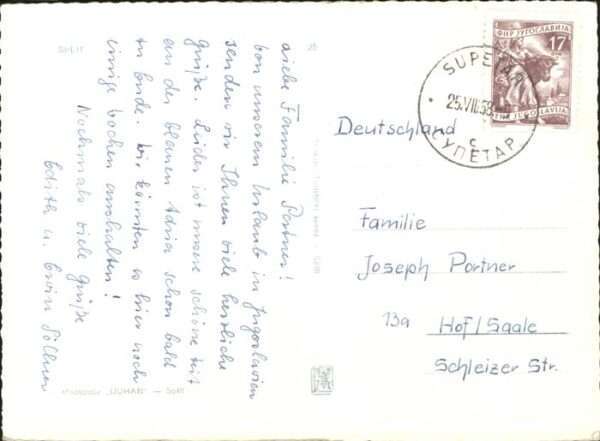 Liebe Familie Portner!
Von unserem Urlaub in Jugoslavien
senden wir Ihnen viele herzliche
Grüße. Leider ist unsere schöne Zeit
an der blauen Adria schon bald
zu Ende. Wir könnten es hier noch
einige Wochen aushalten!
Nochmals viele Grüße
Edith u. Erwin
ФНР ЈУГОСЛАВИЈА
17
FNR JUGOSLAVIJA
SUPETAR
25.VIII.58
c
СУПЕТАР
Deutschland
Familie
Joseph Portner
13a Hof/Saale
Schleizer Str.
— Split